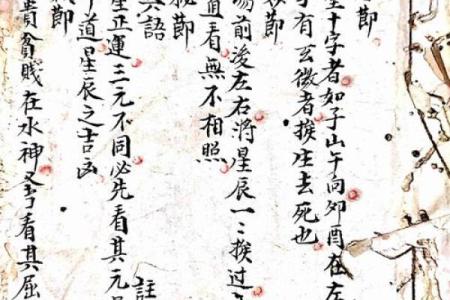 節
十字者如子山午向夘酉在左
字有玄微者挨生去死也
節
場前後左右將星辰一〻挨过
直看無不相照
節
其語
註
星正運三元不同必先看其元
道星辰之吉凶
節
貴貧賤在水神又看其屈